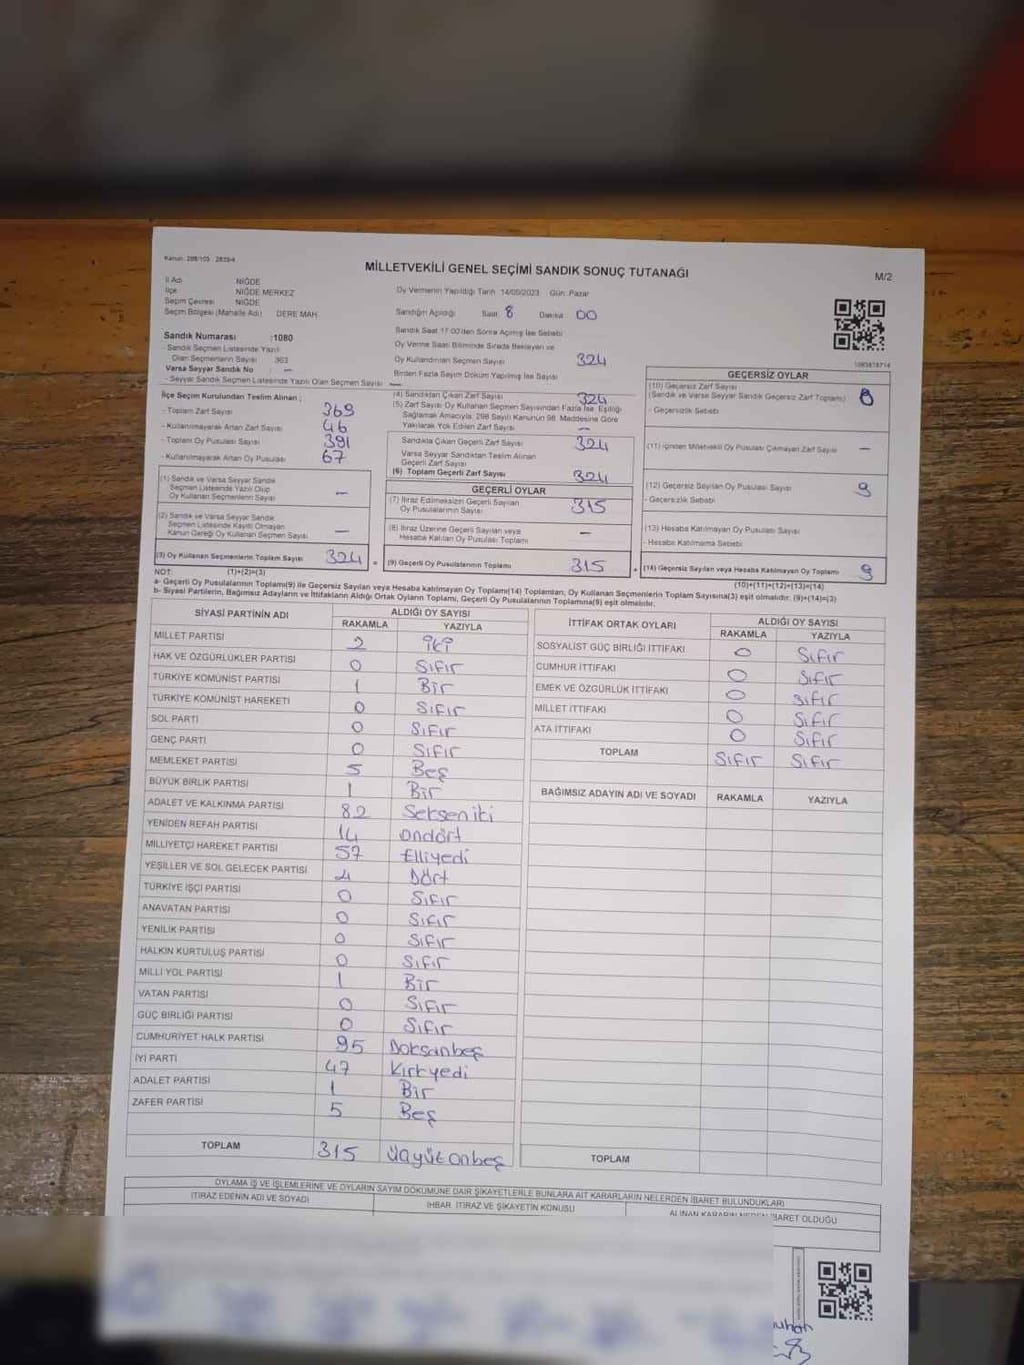 Kanun: 298/105 2839/4
MİLLETVEKİLİ GENEL SEÇİMİ SANDIK SONUÇ TUTANAĞI
M/2
İl Adı NİĞDE
İlçe NİĞDE MERKEZ
Seçim Çevresi NİĞDE
Seçim Bölgesi (Mahalle Adı) DERE MAH.
Oy Vermenin Yapıldığı Tarih 14/05/2023 Gün: Pazar
Sandığın Açıldığı Saat 8 Dakika 00
Sandık Saat 17.00'den Sonra Açılmış İse Sebebi
Sandık Numarası :1080
- Sandık Seçmen Listesinde Yazılı
Olan Seçmenlerin Sayısı 363
Varsa Seyyar Sandık No -
- Seyyar Sandık Seçmen Listesinde Yazılı Olan Seçmen Sayısı -
Oy Verme Saati Bitiminde Sırada Bekleyen ve
Oy Kullandırılan Seçmen Sayısı 324
Birden Fazla Sayım Döküm Yapılmış İse Sayısı
İlçe Seçim Kurulundan Teslim Alınan ;
- Toplam Zarf Sayısı 369
- Kullanılmayarak Artan Zarf Sayısı 46
- Toplam Oy Pusulası Sayısı 391
- Kullanılmayarak Artan Oy Pusulası 67
(1) Sandık ve Varsa Seyyar Sandık
Seçmen Listesinde Yazılı Olup
Oy Kullanan Seçmenlerin Sayısı -
(2) Sandık ve Varsa Seyyar Sandık
Seçmen Listesinde Kayıtlı Olmayan
Kanun Gereği Oy Kullanan Seçmen Sayısı -
(3) Oy Kullanan Seçmenlerin Toplam Sayısı 324
(4) Sandıktan Çıkan Zarf Sayısı 324
(5) Zarf Sayısı Oy Kullanan Seçmen Sayısından Fazla İse, Eşitliği
Sağlamak Amacıyla; 298 Sayılı Kanunun 98. Maddesine Göre
Yakılarak Yok Edilen Zarf Sayısı -
Sandıkta Çıkan Geçerli Zarf Sayısı 324
Varsa Seyyar Sandıktan Teslim Alınan
Geçerli Zarf Sayısı
(6) Toplam Geçerli Zarf Sayısı 324
GEÇERLİ OYLAR
(7) İtiraz Edilmeksizin Geçerli Sayılan
Oy Pusulalarının Sayısı 315
(8) İtiraz Üzerine Geçerli Sayılan veya
Hesaba Katılan Oy Pusulası Toplamı -
(9) Geçerli Oy Pusulalarının Toplamı 315
GEÇERSİZ OYLAR
(10) Geçersiz Zarf Sayısı
(Sandık ve Varsa Seyyar Sandık Geçersiz Zarf Toplamı)
- Geçersizlik Sebebi
(11) İçinden Milletvekili Oy Pusulası Çıkmayan Zarf Sayısı -
(12) Geçersiz Sayılan Oy Pusulası Sayısı 9
- Geçersizlik Sebebi
(13) Hesaba Katılmayan Oy Pusulası Sayısı
- Hesaba Katılmama Sebebi
(14) Geçersiz Sayılan veya Hesaba Katılmayan Oy Toplamı 9
NOT: (1)+(2)=(3)
(10)+(11)+(12)+(13)=(14)
a- Geçerli Oy Pusulalarının Toplamı(9) ile Geçersiz Sayılan veya Hesaba katılmayan Oy Toplamı(14) Toplamları, Oy Kullanan Seçmenlerin Toplam Sayısına(3) eşit olmalıdır. (9)+(14)=(3)
b- Siyasi Partilerin, Bağımsız Adayların ve İttifakların Aldığı Ortak Oyların Toplamı, Geçerli Oy Pusulalarının Toplamına(9) eşit olmalıdır.
SİYASİ PARTİNİN ADI ALDIĞI OY SAYISI
RAKAMLA YAZIYLA
MİLLET PARTİSİ 2 iki
HAK VE ÖZGÜRLÜKLER PARTİSİ 0 Sıfır
TÜRKİYE KOMÜNİST PARTİSİ 1 Bir
TÜRKİYE KOMÜNİST HAREKETİ 0 Sıfır
SOL PARTİ 0 Sıfır
GENÇ PARTİ 0 Sıfır
MEMLEKET PARTİSİ 5 Beş
BÜYÜK BİRLİK PARTİSİ 1 Bir
ADALET VE KALKINMA PARTİSİ 82 Sekseniki
YENİDEN REFAH PARTİSİ 14 ondört
MİLLİYETÇİ HAREKET PARTİSİ 57 Elliyedi
YEŞİLLER VE SOL GELECEK PARTİSİ 4 Dört
TÜRKİYE İŞÇİ PARTİSİ 0 Sıfır
ANAVATAN PARTİSİ 0 Sıfır
YENİLİK PARTİSİ 0 Sıfır
HALKIN KURTULUŞ PARTİSİ 0 Sıfır
MİLLİ YOL PARTİSİ 1 Bir
VATAN PARTİSİ 0 Sıfır
GÜÇ BİRLİĞİ PARTİSİ 0 Sıfır
CUMHURİYET HALK PARTİSİ 95 Doksanbeş
İYİ PARTİ 47 Kırkyedi
ADALET PARTİSİ 1 Bir
ZAFER PARTİSİ 5 Beş
TOPLAM 315 Üçyüzonbeş
İTTİFAK ORTAK OYLARI ALDIĞI OY SAYISI
RAKAMLA YAZIYLA
SOSYALİST GÜÇ BİRLİĞİ İTTİFAKI 0 Sıfır
CUMHUR İTTİFAKI 0 Sıfır
EMEK VE ÖZGÜRLÜK İTTİFAKI 0 Sıfır
MİLLET İTTİFAKI 0 Sıfır
ATA İTTİFAKI 0 Sıfır
TOPLAM Sıfır Sıfır
BAĞIMSIZ ADAYIN ADI VE SOYADI RAKAMLA YAZIYLA
TOPLAM
OYLAMA İŞ VE İŞLEMLERİNE VE OYLARIN SAYIM DÖKÜMÜNE DAİR ŞİKAYETLERLE BUNLARA AİT KARARLARIN NELERDEN İBARET BULUNDUKLARI
İTİRAZ EDENİN ADI VE SOYADI İHBAR, İTİRAZ VE ŞİKAYETİN KONUSU ALINAN KARARIN NEDEN İBARET OLDUĞU